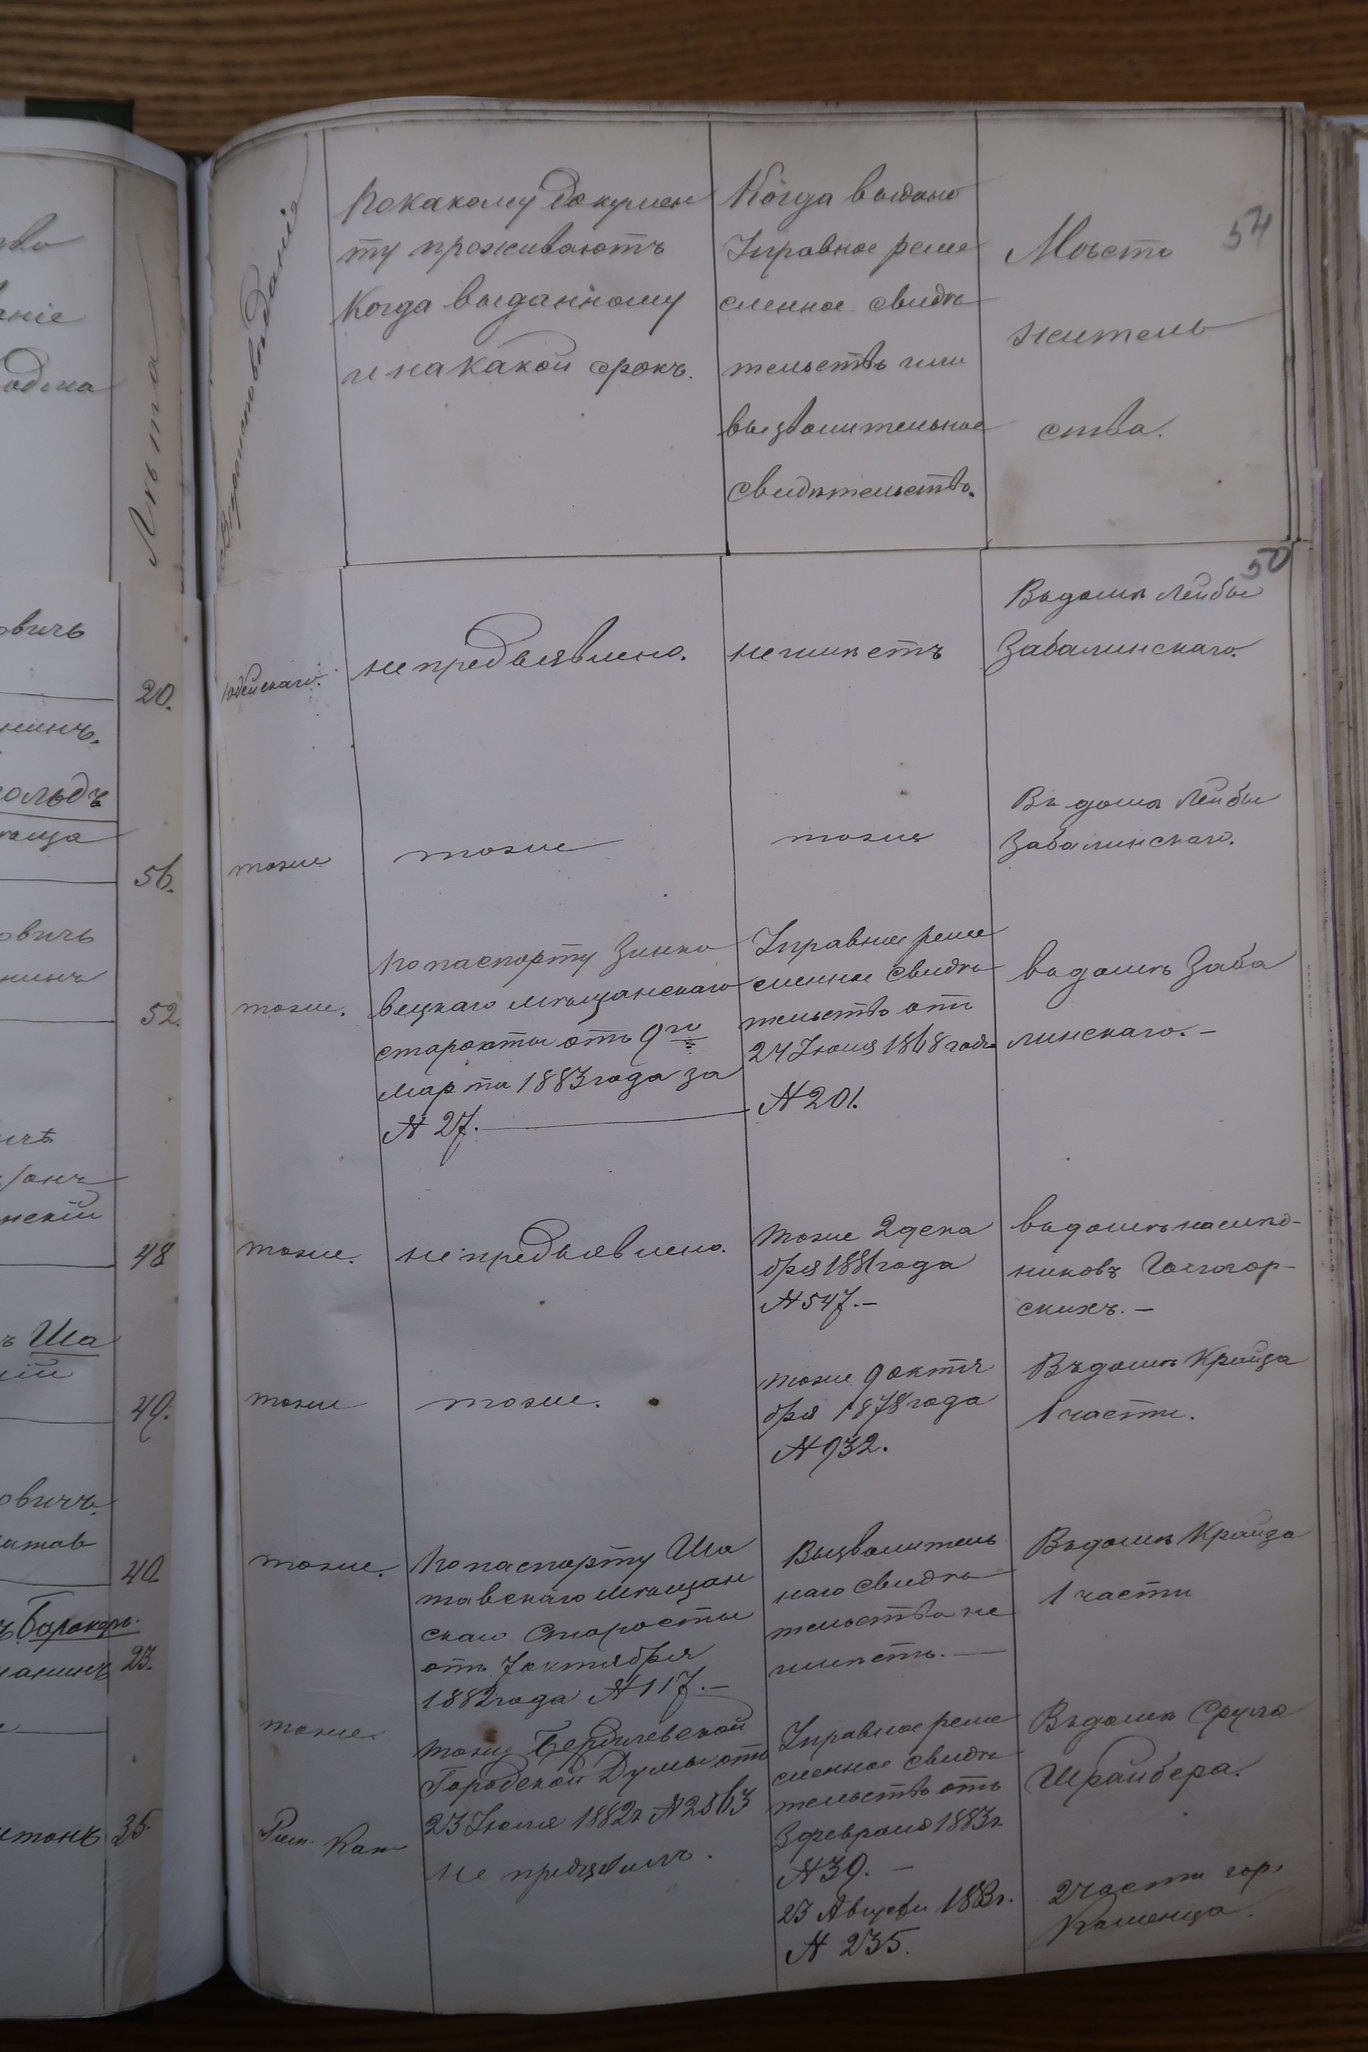 Лѣта
Вѣроисповѣданія
По какому докумен
ту проживаютъ
Когда выданному
и на какой срокъ.
Когда выдано
Управное реме
сленное свидѣ
тельство или
вызволительное
свидѣтельство.
54
Мѣсто
житель
ства.
50
овичъ
20.
Іудейскаго.
не предъявлено.
не имѣетъ
Въ домѣ Лейбы
Забалинскаго.
нинъ.
ольдъ
56.
тоже
тоже
тоже
Въ домѣ Лейбы
Забалинскаго.
овичъ
нинъ
52.
тоже.
По паспорту Зинко
вецкаго мѣщанскаго
старосты отъ 9го
марта 1883 года за
№ 27.
Управное реме
сленное свидѣ
тельство отъ
24 Іюня 1868 года
№ 201.
въ домѣ Заба
линскаго. –
нскій
48
тоже.
не предъявлено.
тоже 2 дека
бря 1881 года
№ 547. –
въ домѣ наслѣд-
никовъ Гологор-
скихъ. –
ъ Ша
кій
49.
тоже
тоже.
тоже 9 октя
бря 1878 года
№ 932.
Въ домѣ Крайза
1 части.
овичъ.
40
тоже.
По паспорту Ша
тавскаго мѣщан
скаго Старосты
отъ 7 октября
1882 года № 117. –
Вызволитель
наго свидѣ
тельства не
имѣетъ. —
Въ домѣ Крайза
1 части
23.
тоже.
тоже Бердичевской
Городской Думы отъ
23 Іюля 1882 г № 2863
Управное реме
сленное свидѣ
тельство отъ
3 февраля 1883 г.
№ 39. –
Въ домѣ Сруля
Шрайбера.
35.
Рим. Кат
не предъявилъ.
23 Августа 1883 г.
№ 235.
2 части гор.
Каменца.